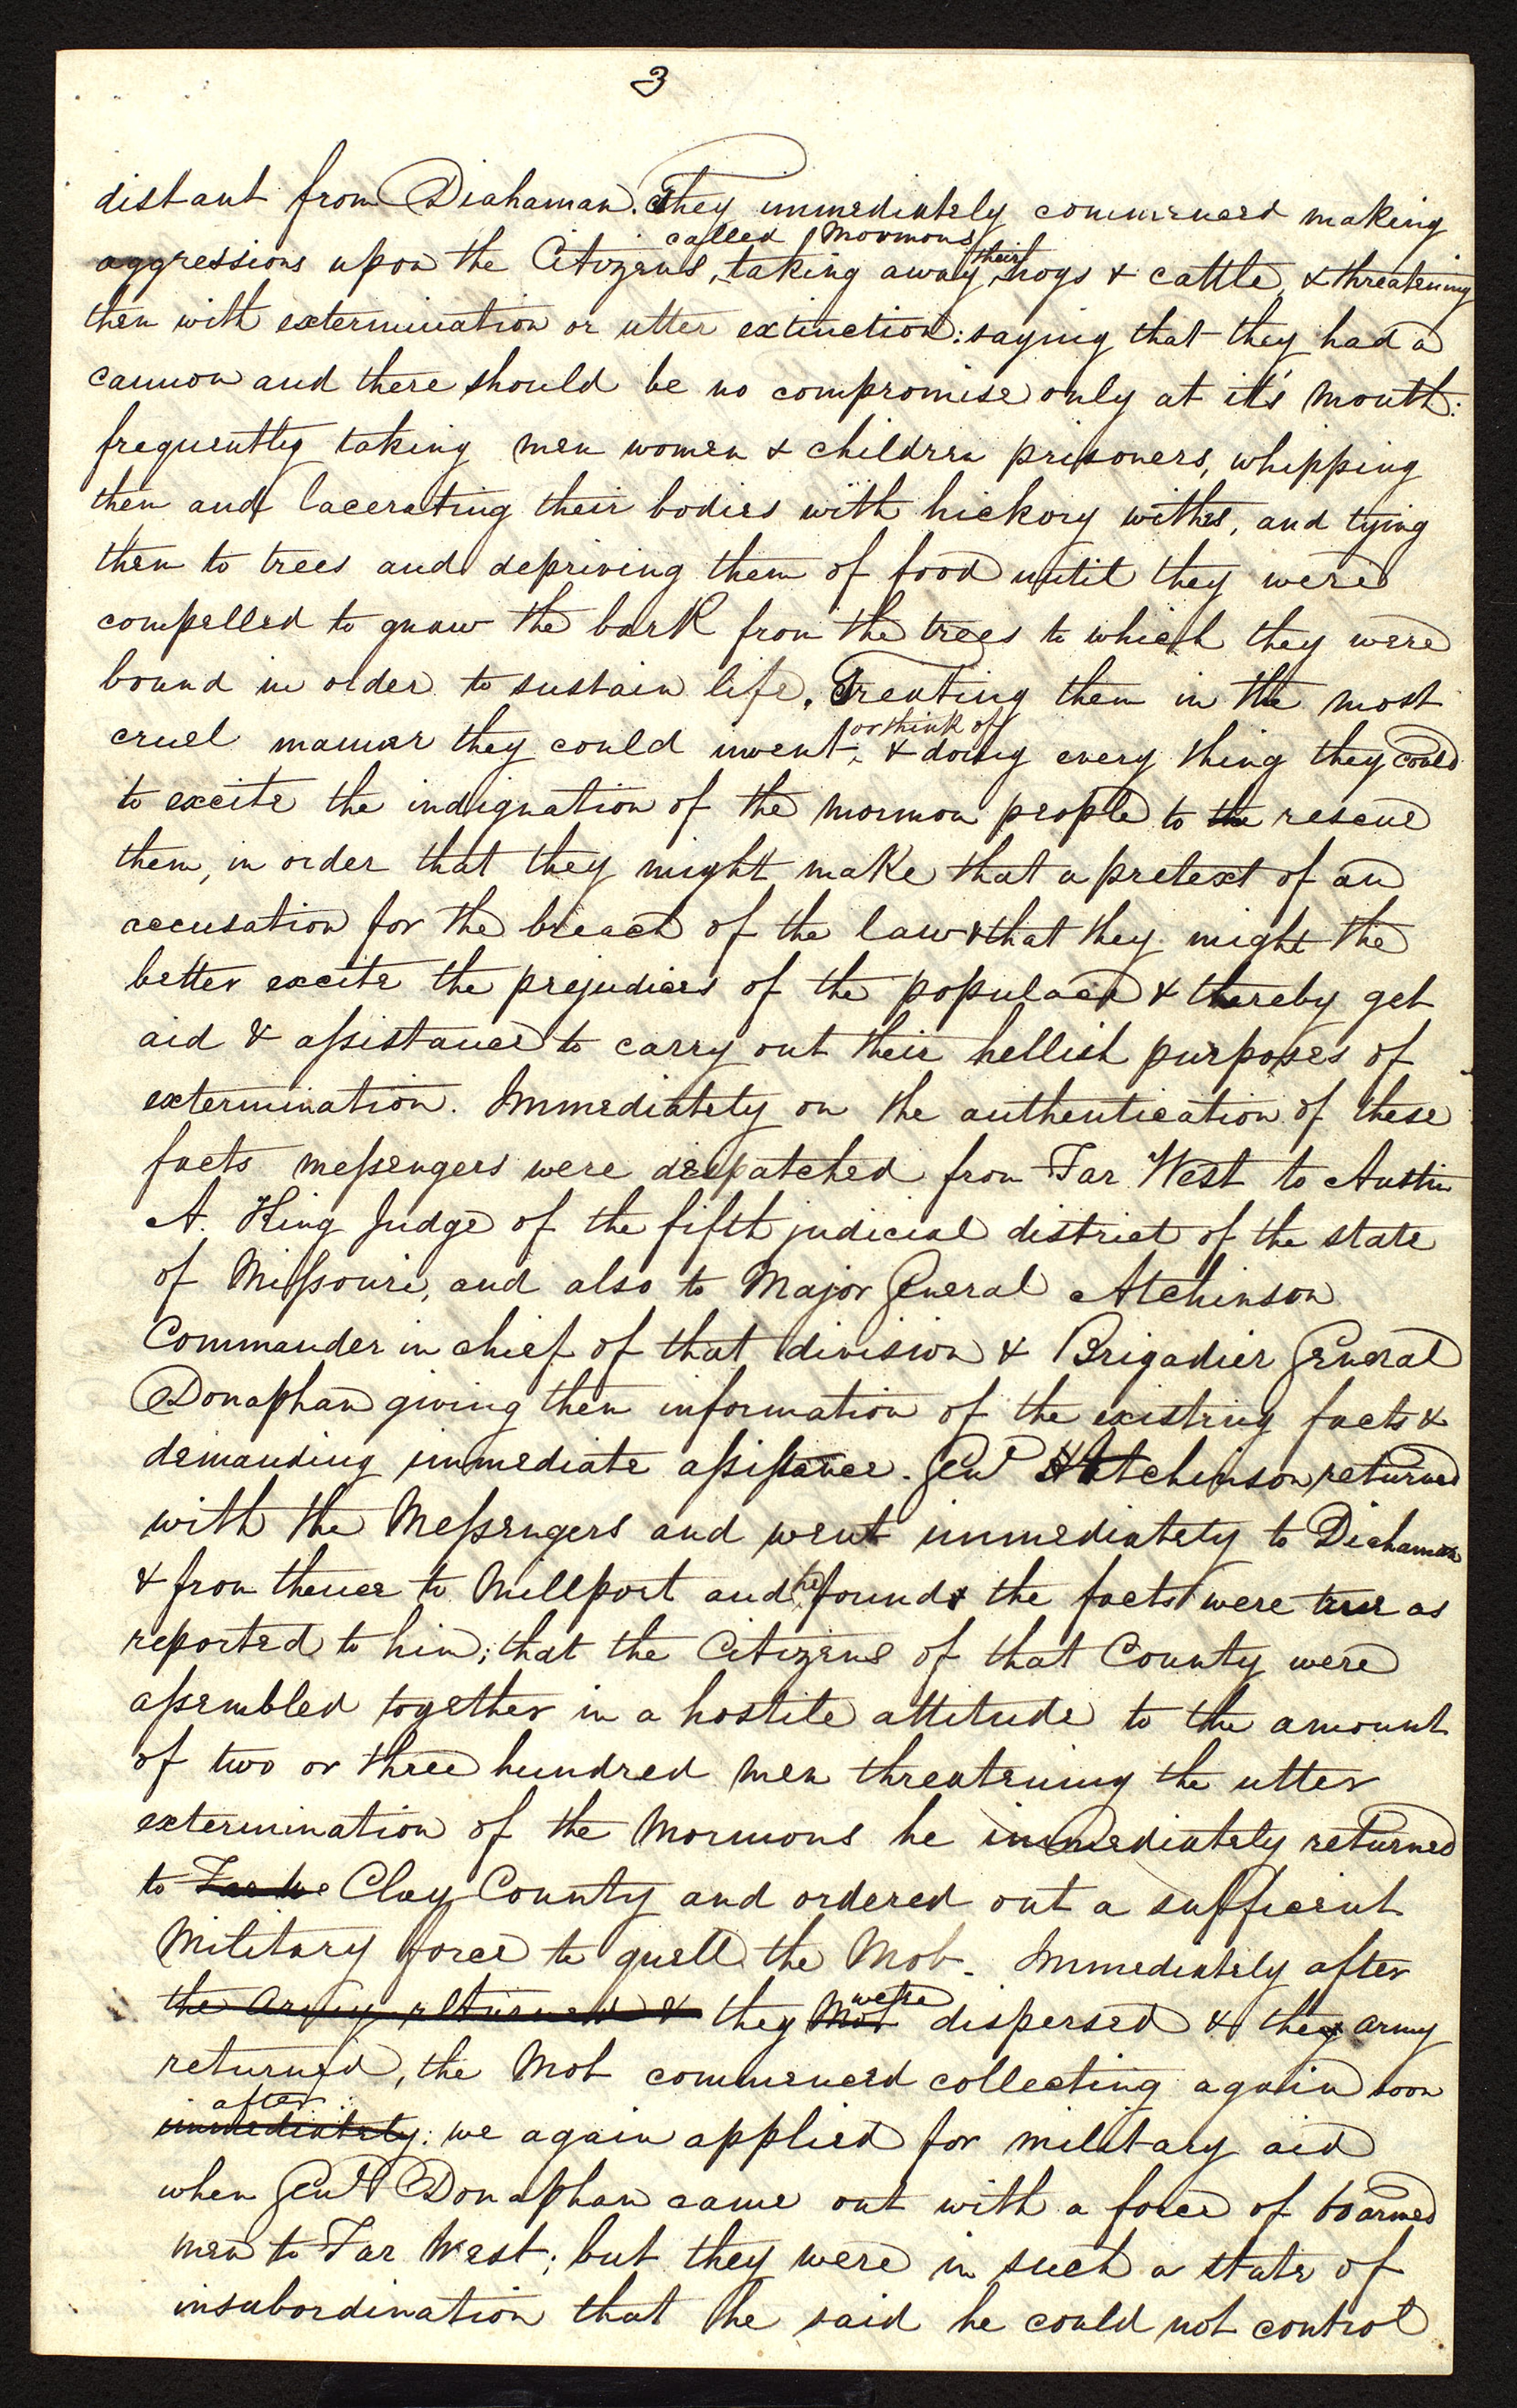 3
distant from Diahaman. They immediately commenced making
called Mormons
aggressions upon the Citizens, taking away their hogs & cattle, & threatening
them with extermination or utter extinction: saying that they had a
cannon and there should be no compromise only at it's mouth:
frequently taking men women & children prisoners, whipping
them and lacerating their bodies with hickory withes, and tying
them to trees and depriving them of food until they were
compelled to gnaw the bark from the trees to which they were
bound in order to sustain life. Treating them in the most
or think of
cruel manner they could invent, & doing every thing they could
to excite the indignation of the mormon people to the rescue
them, in order that they might make that a pretext of an
accusation for the breach of the law & that they might the
better excite the prejudices of the populace & thereby get
aid & assistance to carry out their hellish purposes of
extermination. Immediately on the authentication of these
facts messengers were despatched from Far West to Austin
A. King Judge of the fifth judicial district of the state
of Missouri, and also to Major General Atchinson
Commander in chief of that division & Brigadier General
Donaphan giving them information of the existing facts &
demanding immediate assistance. Genl Atchinson returned
with the Messengers and went immediately to Diahaman
& from thence to Millport and he found the facts were true as
reported to him; that the Citizens of that County were
assembled together in a hostile attitude to the amount
of two or three hundred men threatening the utter
extermination of the Mormons he immediately returned
to Far We Clay County and ordered out a sufficient
Military force to quell the Mob. Immediately after
were
the Army returned & they Mob dispersed & they army
returned, the Mob commenced collecting again soon
after
immediately: we again applied for military aid
when Genl Donaphan came out with a force of 60 armed
men to Far West; but they were in such a state of
insubordination that he said he could not control